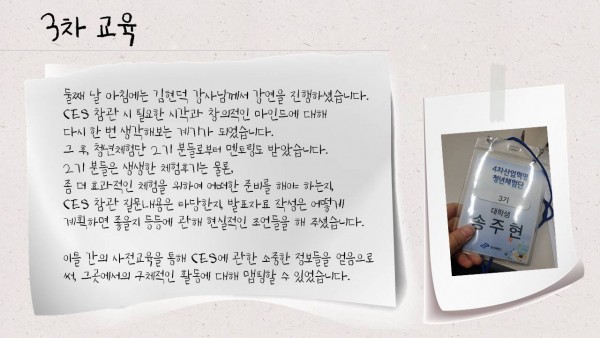 3차 교육
둘째 날 아침에는 김현덕 강사님께서 강연을 진행하셨습니다.
CES 참관 시 필요한 시각과 창의적인 마인드에 대해
다시 한 번 생각해보는 계기가 되었습니다.
그 후, 청년체험단 2기 분들로부터 멘토링도 받았습니다.
2기 분들은 생생한 체험후기는 물론,
좀 더 효과적인 체험을 위하여 어떠한 준비를 해야 하는지,
CES 참관 질문내용은 마땅한지, 발표자료 작성은 어떻게
계획하면 좋을지 등등에 관해 현실적인 조언들을 해 주셨습니다.
이틀 간의 사전교육을 통해 CES에 관한 소중한 정보들을 얻음으로
써, 그곳에서의 구체적인 활동에 대해 맵핑할 수 있었습니다.
4차산업혁명
청년체험단
3기
대학생
송주현